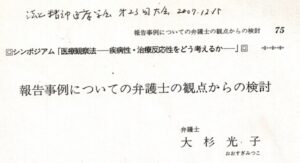 法と精神医療学会 第23回大会 2007.12.15
報告事例についての弁護士の観点からの検討 75
◎シンポジウム「医療観察法──疾病性・治療反応性をどう考えるか──」◎
報告事例についての弁護士の観点からの検討
弁護士
大杉光子
おおすぎみつこ